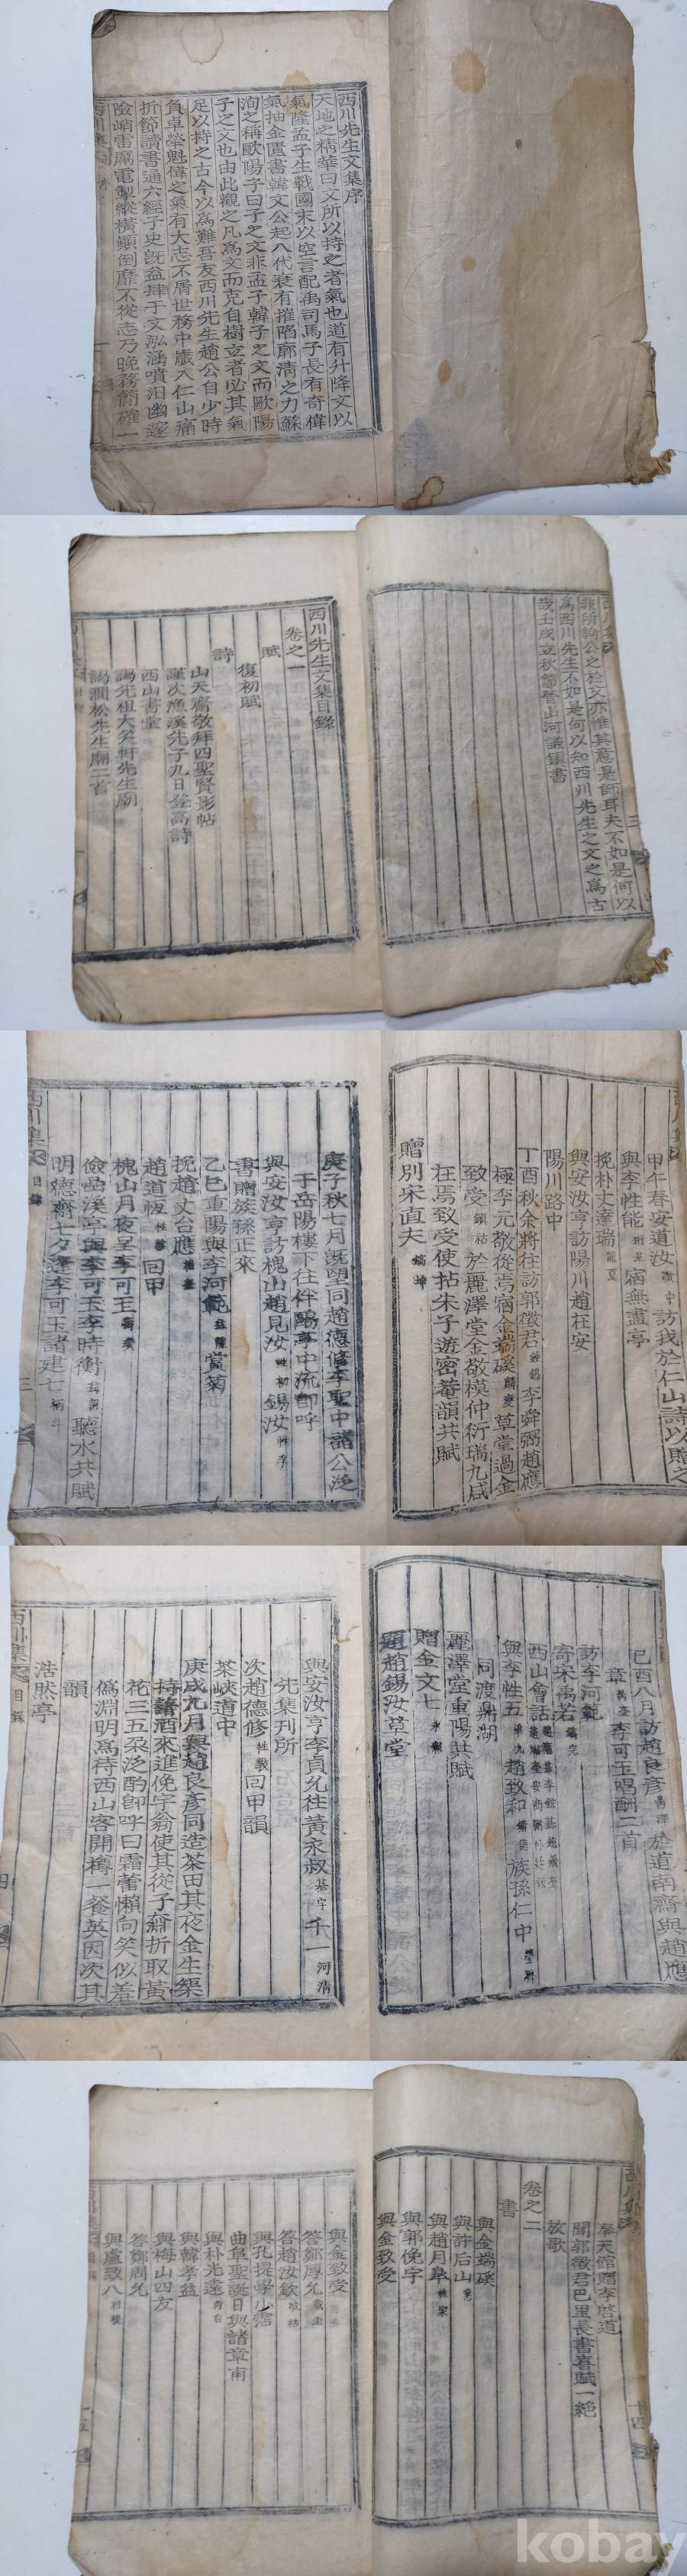 西川先生文集序
天地之精華曰文所以持之者氣也道有升降文以
氣隆孟子生戰國末以空言配禹司馬子長有奇偉
氣抽金匱書韓文公起八代衰有摧陷廓清之力蘇
洵之稱歐陽子曰子之文非孟子韓子之文而歐陽
子之文也由此觀之凡爲文而克自樹立者必其氣
足以持之古今以爲難吾友西川先生趙公自少時
負卓犖魁偉之氣有大志不屑世務中歲入仁山痛
折節讀書通六經子史旣益肆于文泓涵噴汨幽邃
險峭雷厲電掣縱橫顚倒靡不從志乃晩務簡確一
所論公之於文亦惟其意是師耳夫不如是何以
爲西川先生不如是何以知西川先生之文之爲古
哉壬戌立秋節晉山河謙鎭書
西川先生文集目錄
卷之一
賦
復初賦
詩
山天齋敬拜四聖賢影帖
謹次漁溪先子九日登高詩
西山書堂
謁先祖大笑軒先生廟
謁澗松先生廟二首
甲午春安道汝 中訪我於仁山詩以贈之
與李性能 宿無盡亭
挽朴丈達瑞
與安汝亨訪陽川趙在安
陽川路中
丁酉秋余將往訪郭徵君 李舜弼趙應
極李元敬從焉宿金端磎 草堂過金
致受 於麗澤堂金敬模仲衍瑞九咸
在焉致受使拈朱子遊密菴韻共賦
贈別宋直夫 鎬坤
庚子秋七月旣望同趙德修李聖中諸公泛
于岳陽樓下往伴鷗亭中流卽呼
與安汝亨訪槐山趙見汝 錫汝
書贈族孫正來
乙巳重陽與李河範 賞菊
挽趙丈台應
趙道恆 回甲
槐山月夜呈李可玉
儉岩溪亭與李可玉李時衡 聽水共賦
明德齋七夕逢李可玉諸建七
己酉八月訪趙良彥 於道南齋與趙應
章 李可玉唱酬二首
訪李河範
寄宋禹若 鎬完
西山會話
與李性五 趙致和 族孫仁中
同渡鼎湖
麗澤堂重陽共賦
贈金文七 永
題趙錫汝草堂
與安汝亨李貞允往黃永叔 基宇 千一 河淸
先集刊所
次趙德修 性敦 回甲韻
茶峽道中
庚戌九月與趙良彥同造茶田其夜金生榘
持諸酒來進俛宇翁使其從子奫折取黃
花三五朶泛酌卽呼曰霜蕾懶向笑似羞
僞淵明爲待西山客開樽一餐英因次其
韻
浩然亭
奉天館贈李啓道
聞郭徵君巴里長書喜賦一絶
放歌
卷之二
書
與金端磎
與許后山
與趙月皐 性家
與郭俛宇
與金致受
與金致受
答鄭厚允 載圭
答趙汝欽
與孔提學小霑
曲阜聖誕日與諸章甫
與朴光遠 尙台
與韓孝益
與梅山四友
答鄭周允
與盧致八
kobay